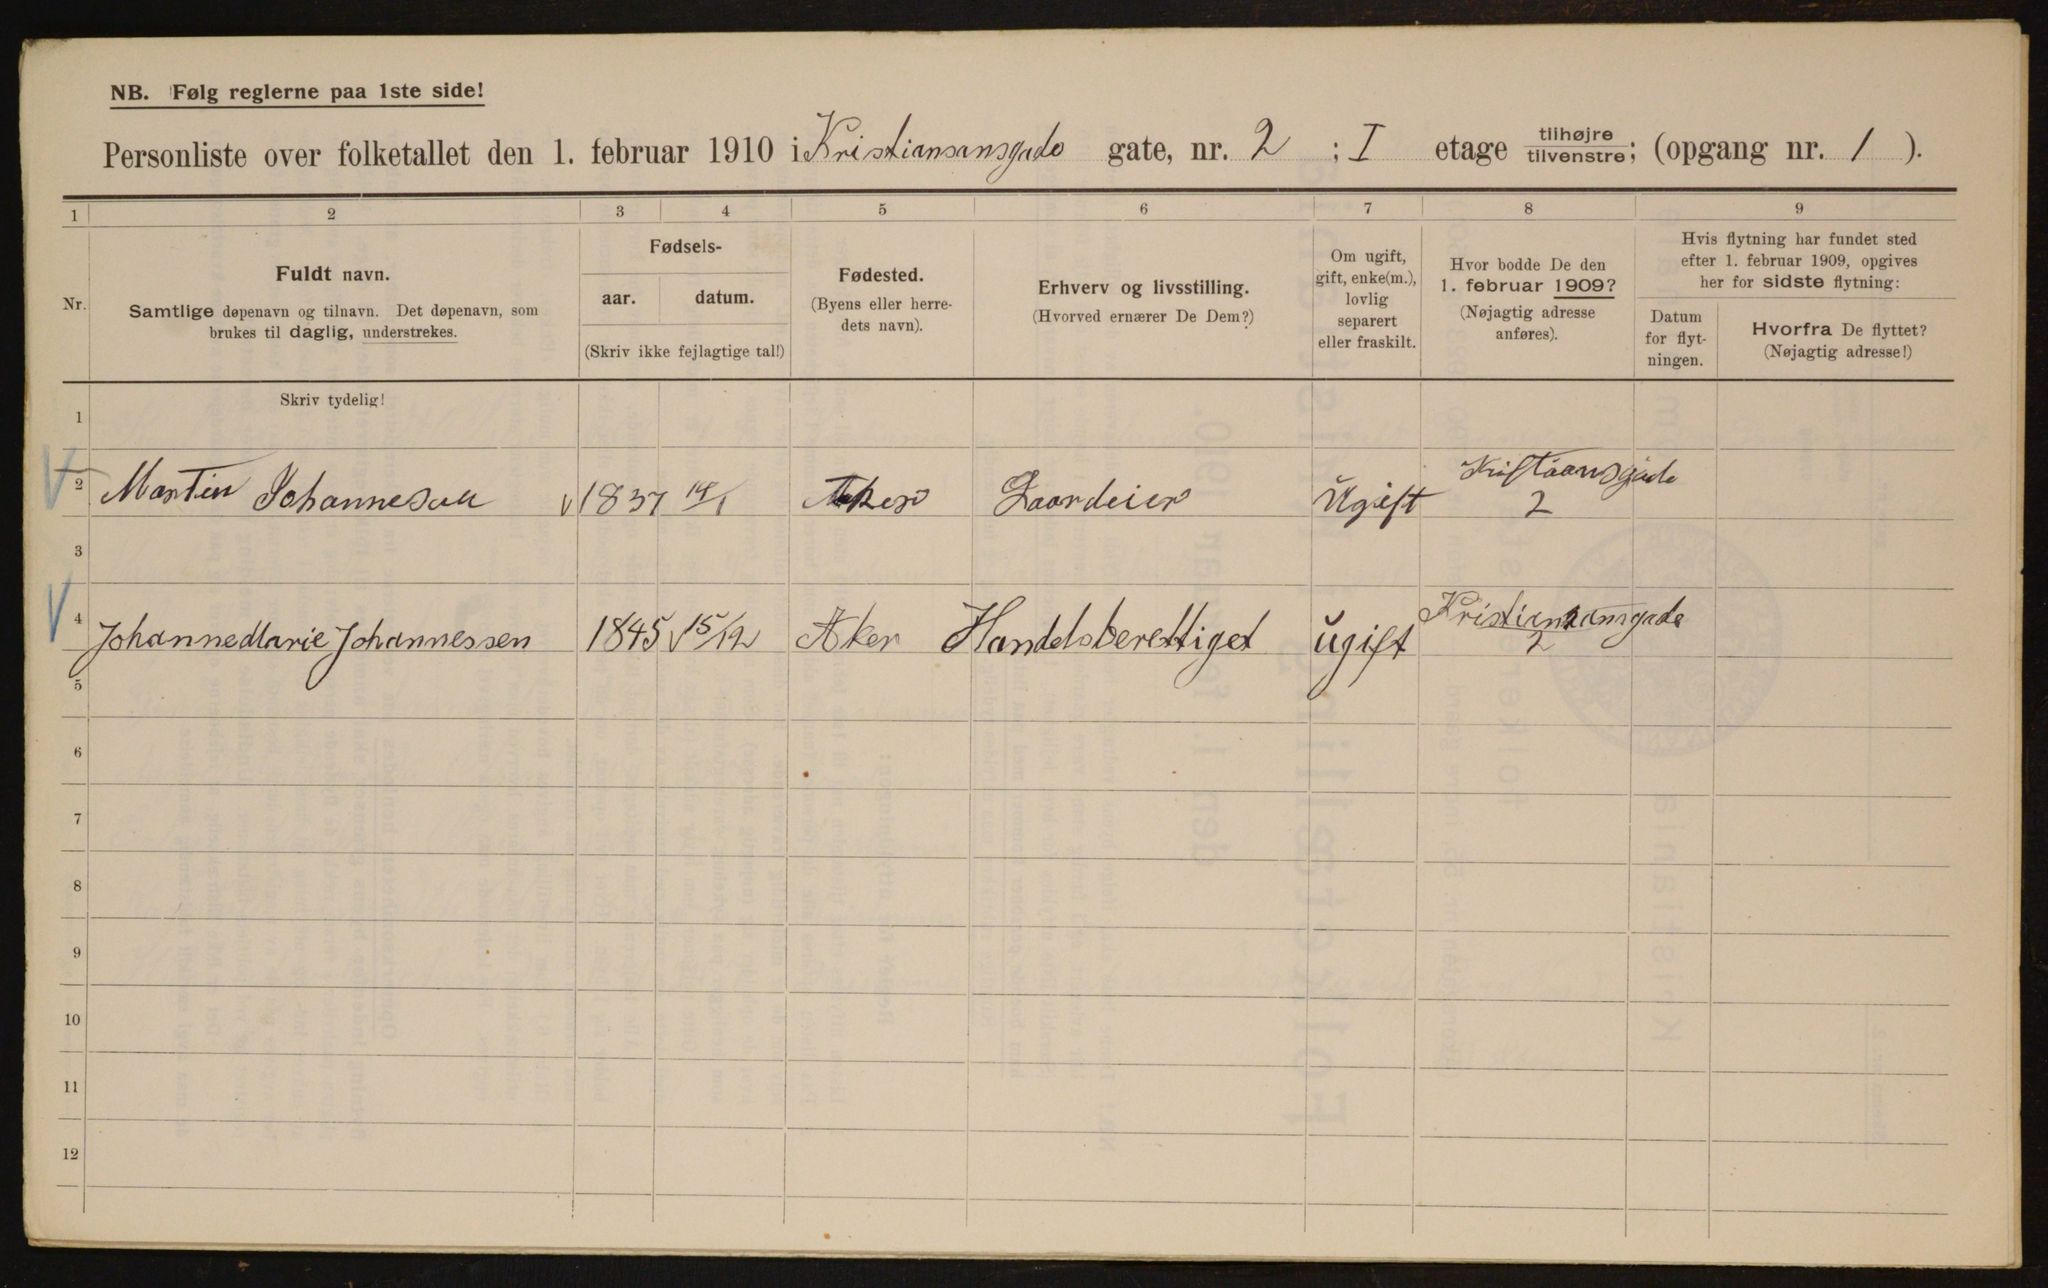 NB. Følg reglerne paa 1ste side!
Personliste over folketallet den 1. februar 1910 i Kristiansansgade gate, nr. 2 ; I etage tilhøjre/tilvenstre; (opgang nr. 1 ).
1 2 3 4 5 6 7 8 9
Nr.
Fuldt navn.
Samtlige døpenavn og tilnavn. Det døpenavn, som
brukes til daglig, understrekes.
Fødsels-
aar. datum.
(Skriv ikke fejlagtige tal!)
Fødested.
(Byens eller herre-
dets navn).
Erhverv og livsstilling.
(Hvorved ernærer De Dem?)
Om ugift,
gift, enke(m.),
lovlig
separert
eller fraskilt.
Hvor bodde De den
1. februar 1909?
(Nøjagtig adresse
anføres).
Hvis flytning har fundet sted
efter 1. februar 1909, opgives
her for sidste flytning:
Datum
for flyt-
ningen.
Hvorfra De flyttet?
(Nøjagtig adresse!)
Skriv tydelig!
1
2 Martin Johannesen 1837 14/1 Aker Gaardeier Ugift Kristiansgade 2
3
4 Johanne Marie Johannessen 1845 15/12 Aker Handelsberettiget ugift Kristiansansgade 2
5
6
7
8
9
10
11
12